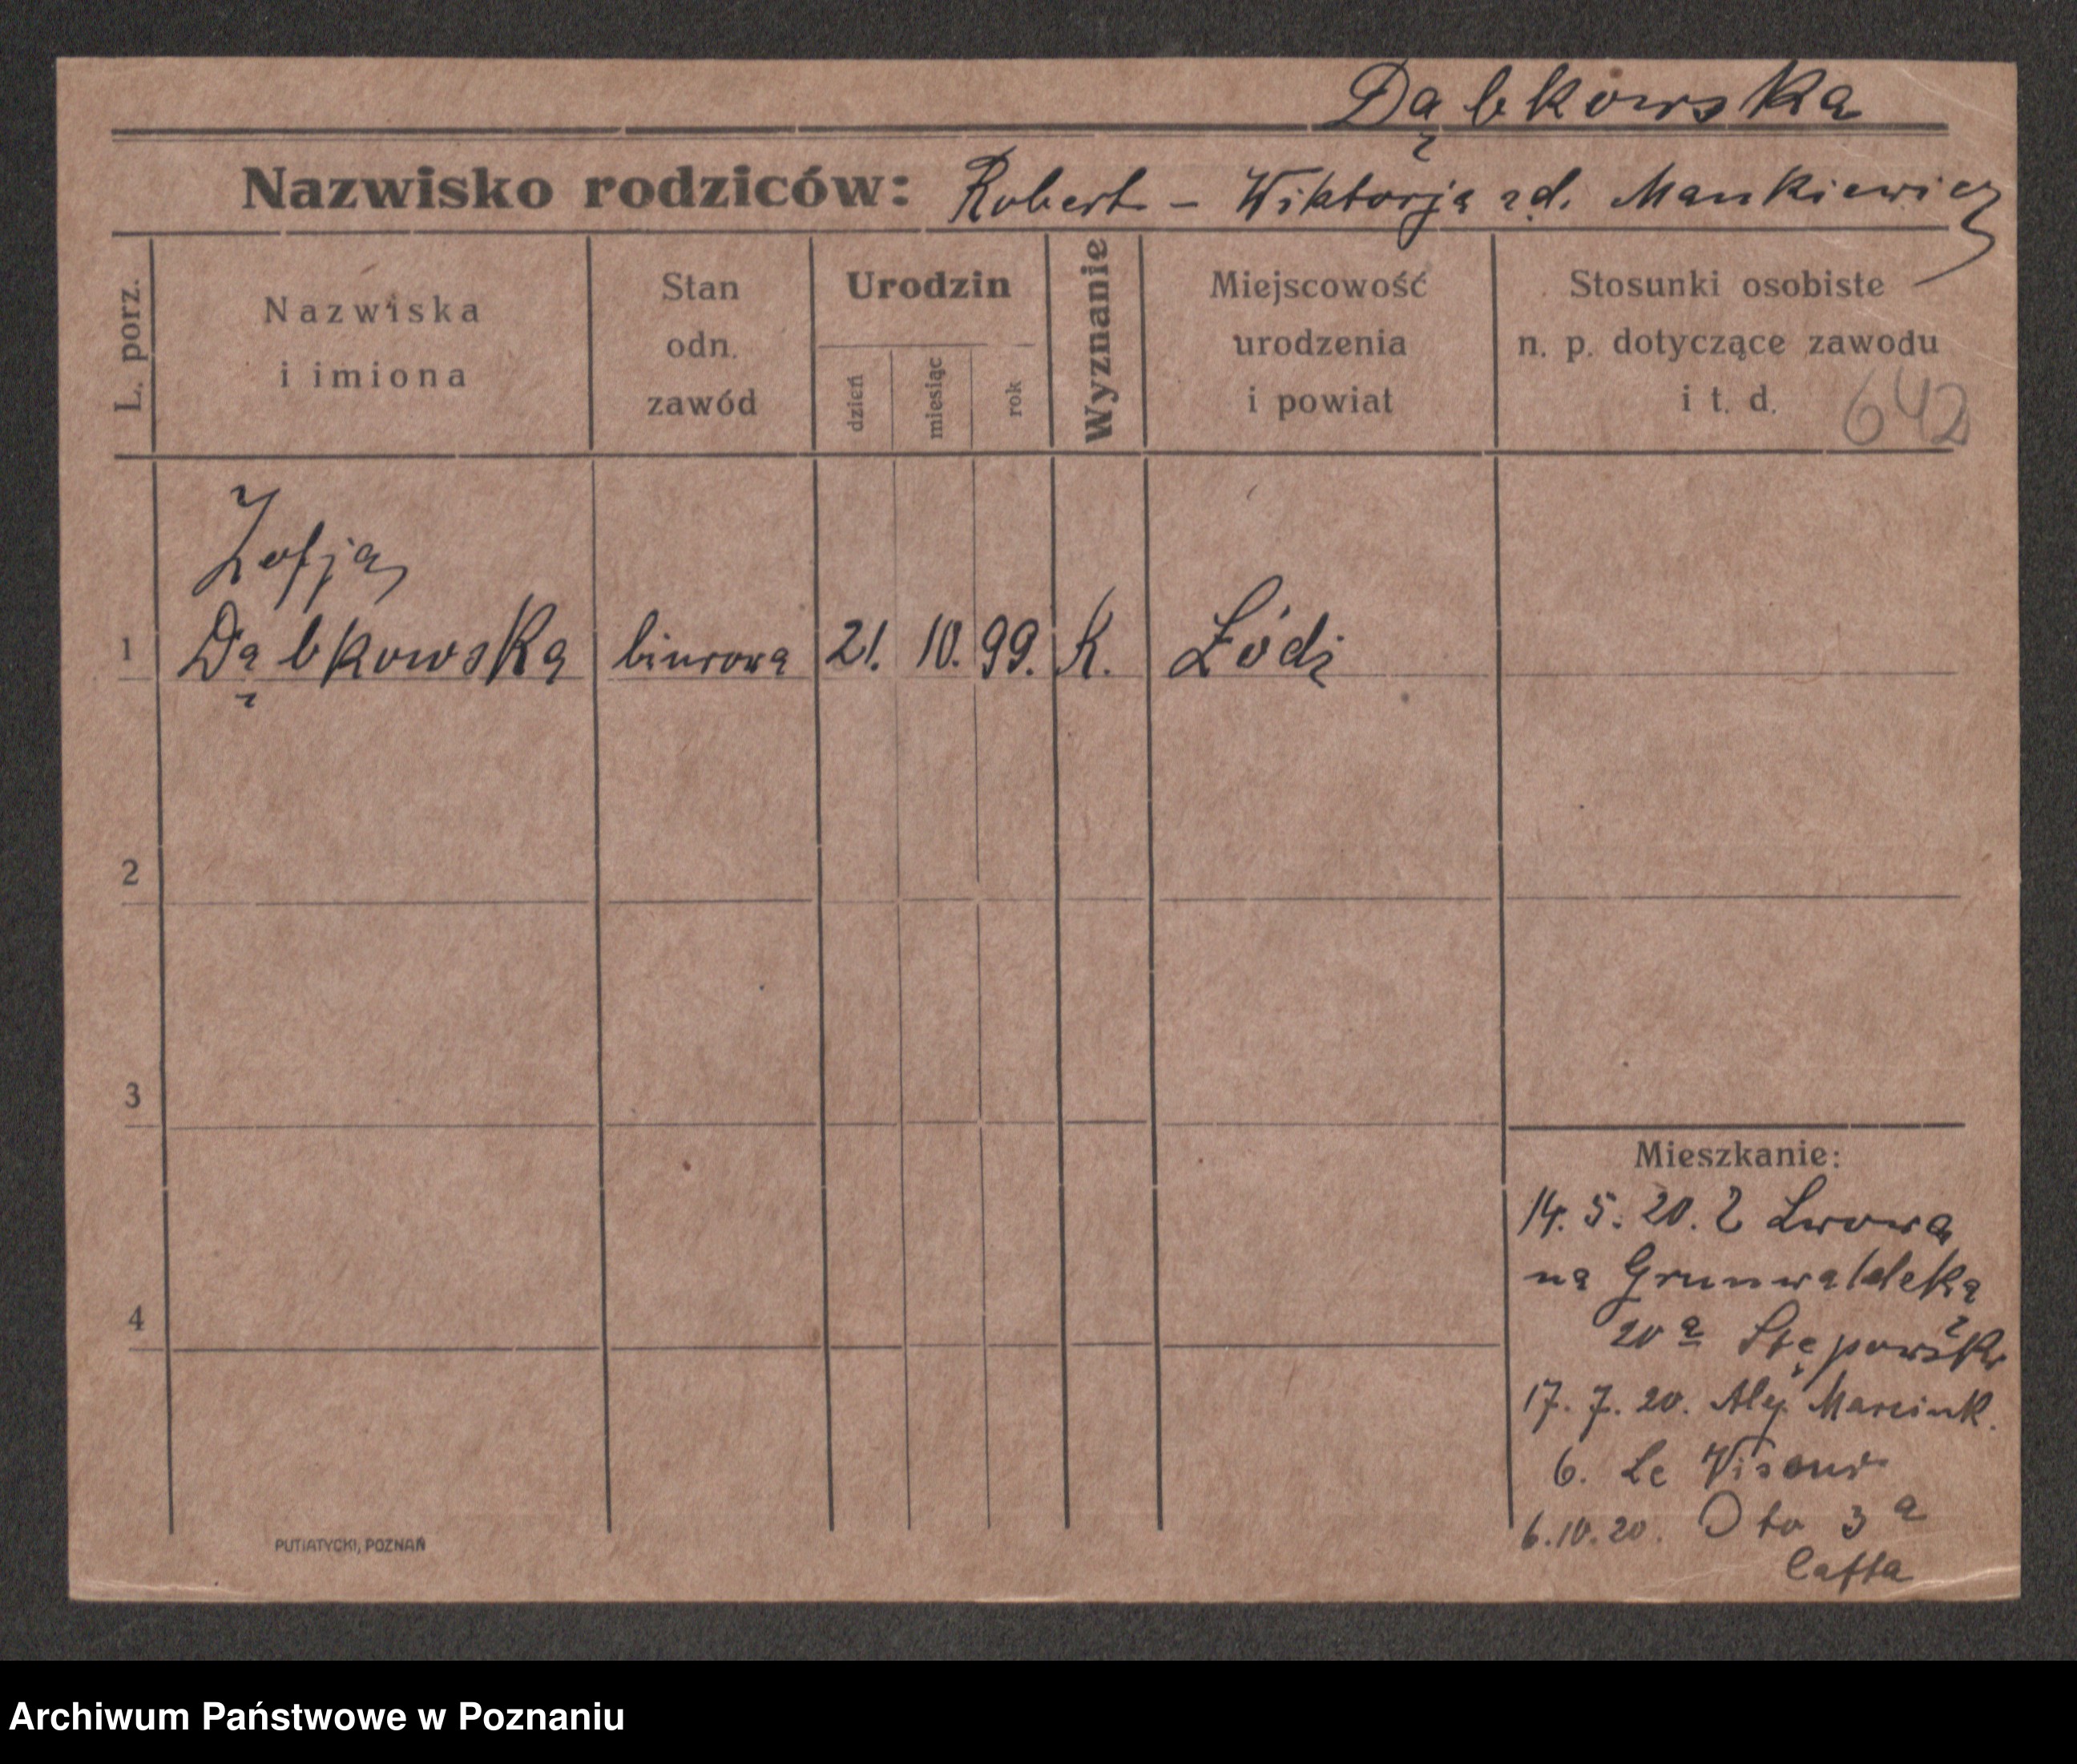 Dąbkowska
Nazwisko rodziców: Robert - Wiktorja zd. Mankiewicz
L. porz.
Nazwiska
i imiona
Stan
odn.
zawód
Urodzin
dzień
miesiąc
rok
Wyznanie
Miejscowość
urodzenia
i powiat
Stosunki osobiste
n. p. dotyczące zawodu
i t. d.
642
Zofja
1 Dąbkowska biurowa 21. 10. 99. K. Łódź
2
3
4
Mieszkanie:
14. 5. 20. Z Lwowa
na Grunwaldzka
20a
17. 7. 20. Alej. Marcink.
6. Le
6.10.20. Oto 3 a
PUTIATYCKI, POZNAŃ
Archiwum Państwowe w Poznaniu